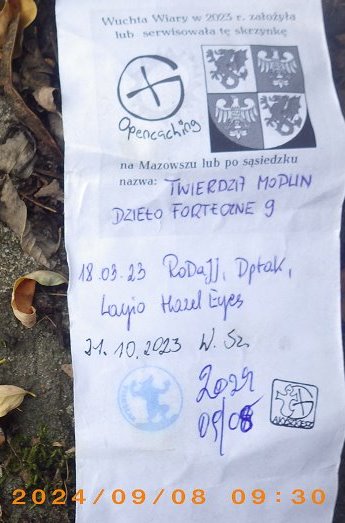 Wuchta Wiary w 2023 r. założyła
lub serwisowała tę skrzynkę
Opencaching
na Mazowszu lub po sąsiedzku
nazwa: TWIERDZA MODLIN
DZIEŁO FORTECZNE 9
18.03.23 RoDaJJ, Dptak,
Layio Hazel Eyes
21.10.2023 W. Sz.
2024
09/08
2024/09/08 09:30